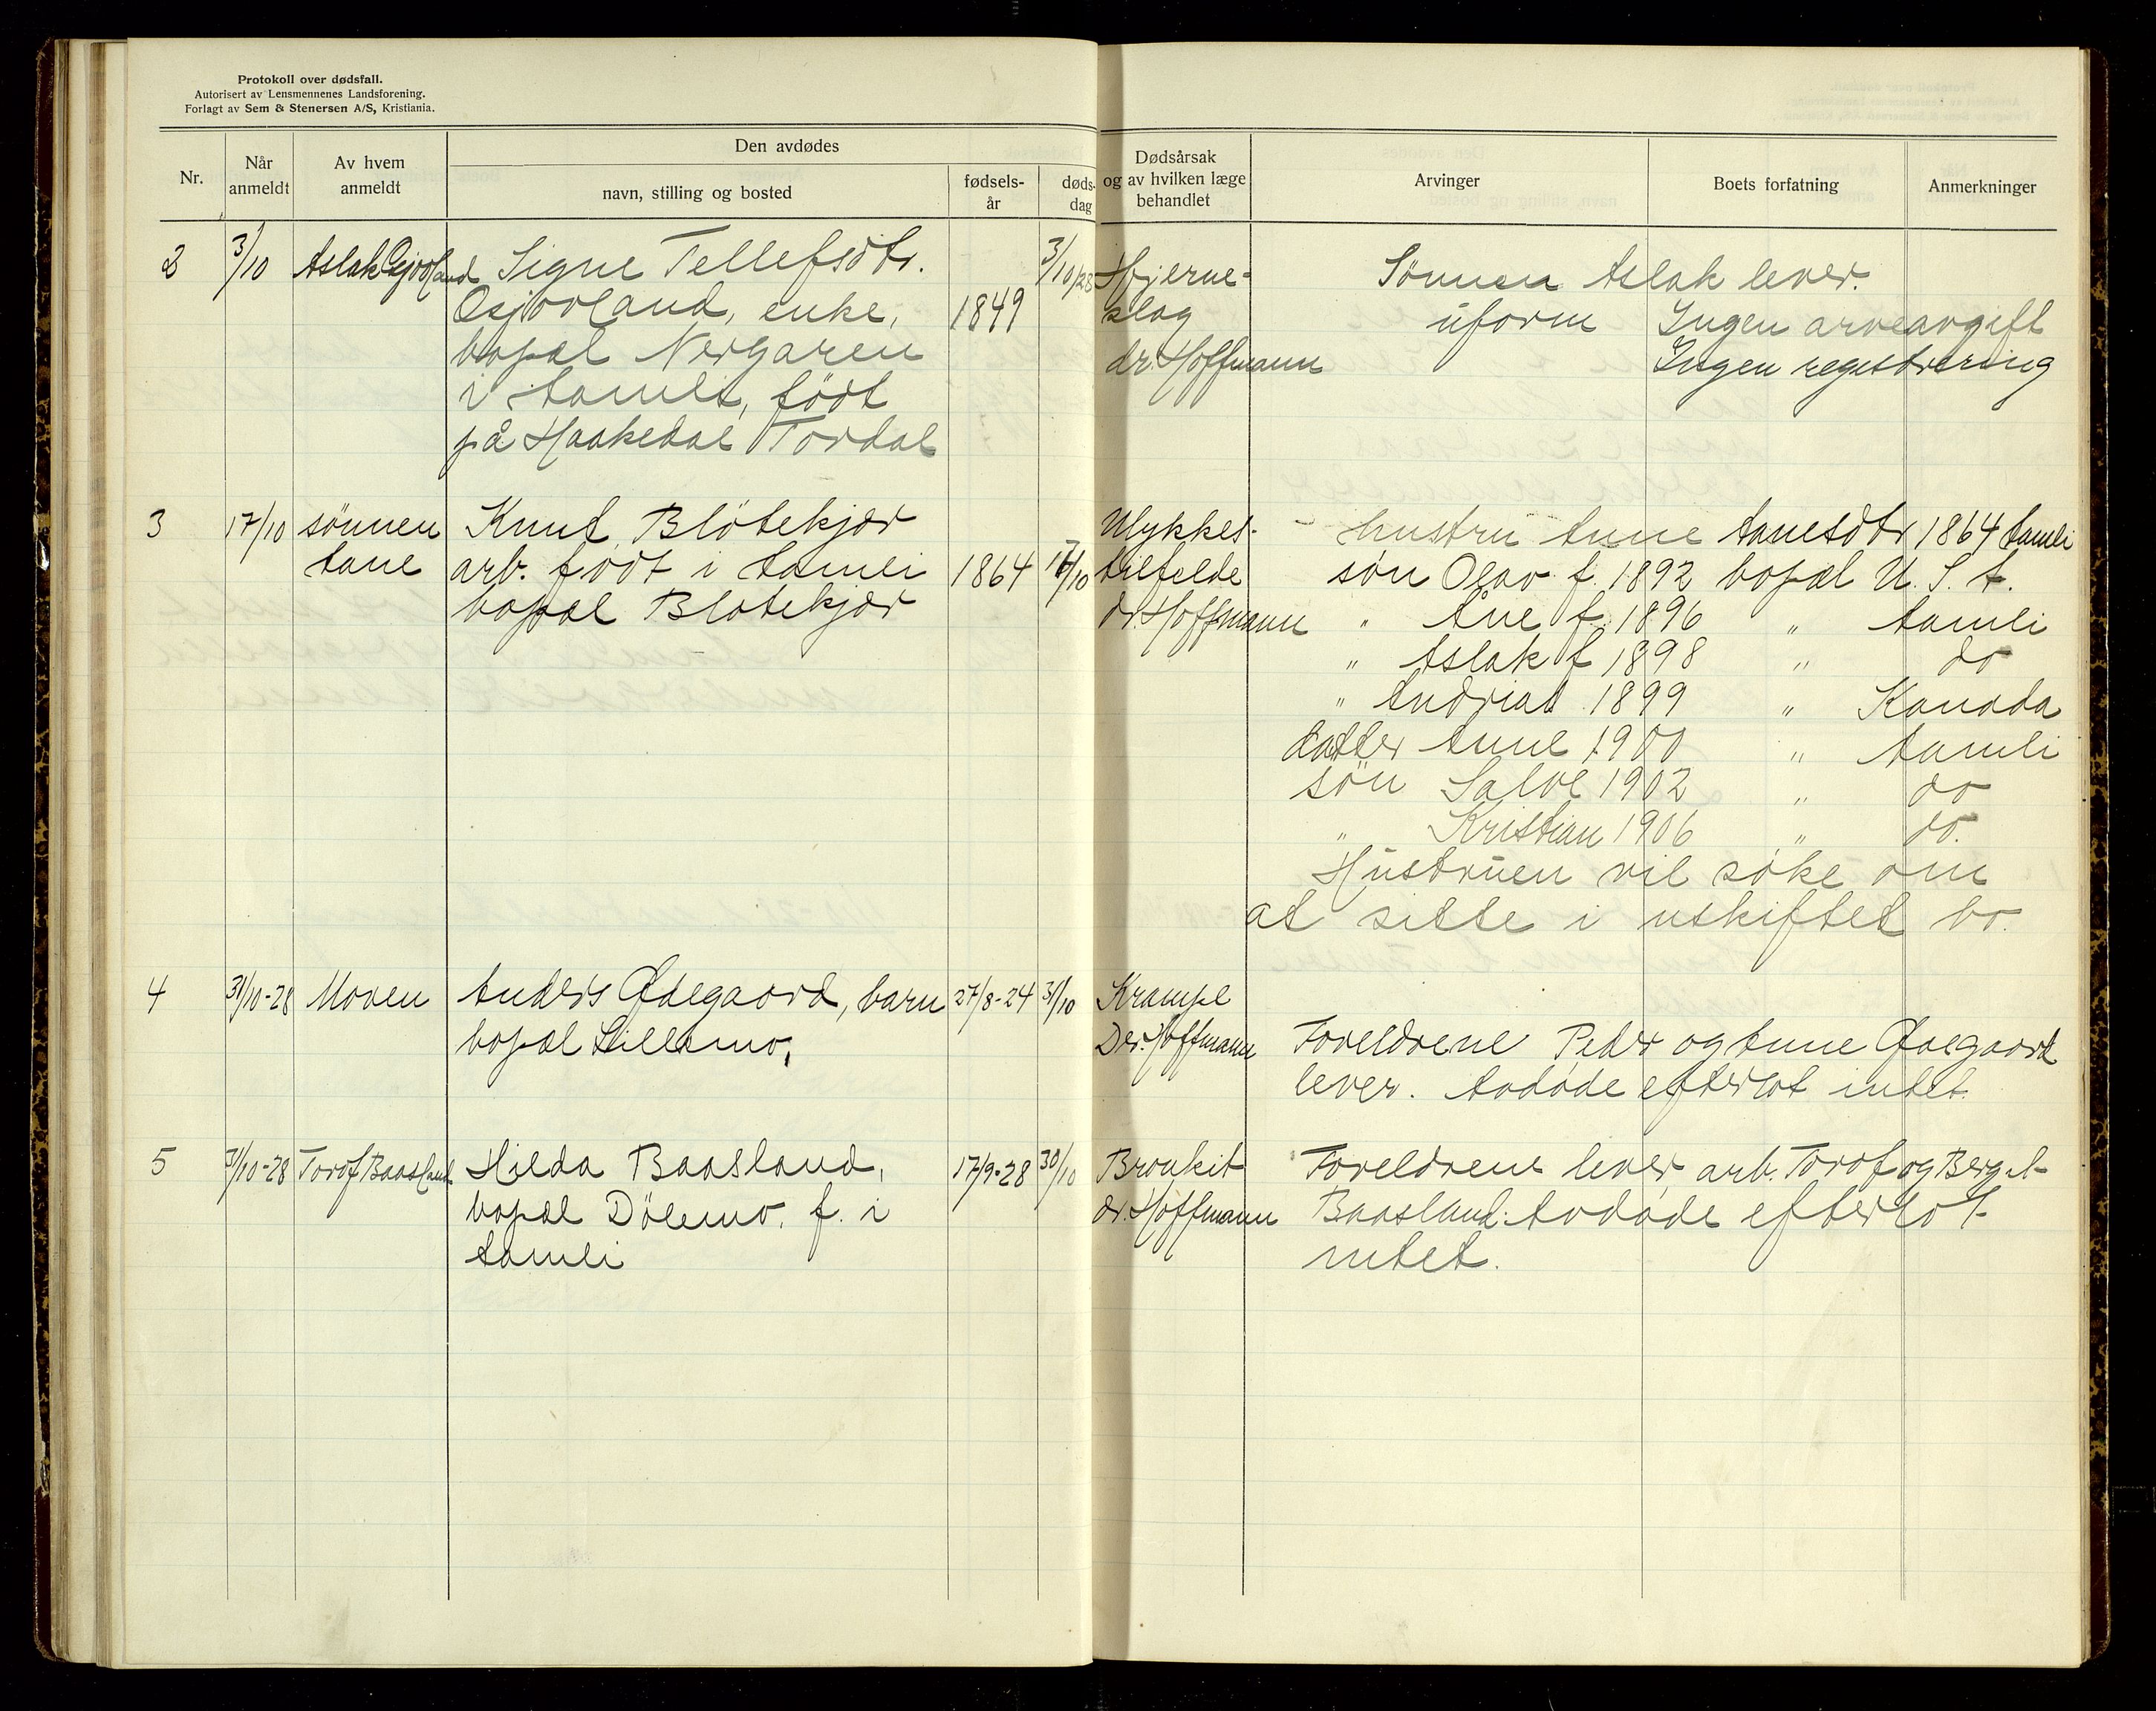 Protokoll over dødsfall.
Autorisert av Lensmennenes Landsforening.
Forlagt av Sem & Stenersen A/S, Kristiania.
Nr.
Når anmeldt
Av hvem anmeldt
Den avdødes
navn, stilling og bosted
fødsels-år
døds-dag
Dødsårsak og av hvilken læge behandlet
Arvinger
Boets forfatning
Anmerkninger
2 3/10 Aslak Gjovland Signe Tellefsdtr. 3/10/28 Hjerne- Sønnen Aslak lever.
Gsjovland, enke, 1849 slag uform Ingen arveavgift
bopæl Nergaren dr. Hoffmann Ingen registrering
i Aamli, født
på Haakedal Tørdal
3 17/10 sønnen Knut Blötekjær Ulykkes- hustru Anne Aanesdtr 1864 Aamli
Aane arb. född i Aamli 1864 17/10 tilfelde søn Olav f. 1892 bopæl U. S. A.
bopæl Blötekjær dr. Hoffmann " Ane f. 1896 " Aamli
" Aslak f 1898 " do
" Andrias 1899 " Kanada
datter Anne 1900 " Aamli
søn Salve 1902 " do
" Kristian 1906 " do.
Hustruen vil søke om
at sitte i uskiftet bo.
4 31/10-28 Moren Anders Ødegaard, barn 27/8-24 31/10 Krampe
bopæl Lillemo, Dr. Hoffmann Foreldrene Peder og Anne Ødegaard
lever. Avdøde efterlot intet.
5 31/10-28 Torof Baasland Hilda Baasland, 17/9-28 30/10 Bronkit Foreldrene lever, arb. Torof og Berget
bopæl Dölemo. f. i dr. Hoffmann Baasland. Avdøde efterlot
Aamli intet.